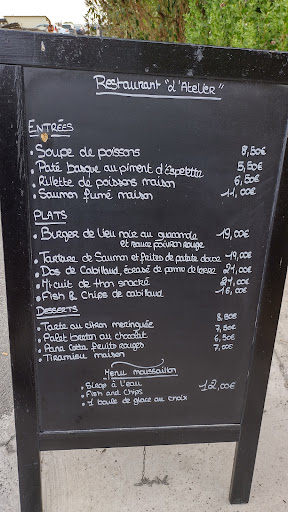 Restaurant "L'Atelier"
ENTRÉES
• Soupe de poissons 8,50€
• Paté basque au piment d'Espelette 5,50€
• Rillette de poissons maison 6,50€
• Saumon fumé maison 11,00€
PLATS
• Burger de lieu noir au guacamole 19,00€
et sauce poivron rouge
• Tartare de Saumon et frites de patate douce 19,00€
• Dos de Cabillaud, écrasé de pomme de terre 21,00€
• Mi-cuit de thon snacké 21,00€
• Fish & Chips de cabillaud 16,00€
DESSERTS
• Tarte au citron meringuée 8,50€
• Palet breton au chocolat 7,50€
• Pana Cotta fruits rouges 6,50€
• Tiramisu maison 7,00€
Menu moussaillon
• Sirop à l'eau 12,00€
• Fish and Chips
• 1 boule de glace au choix